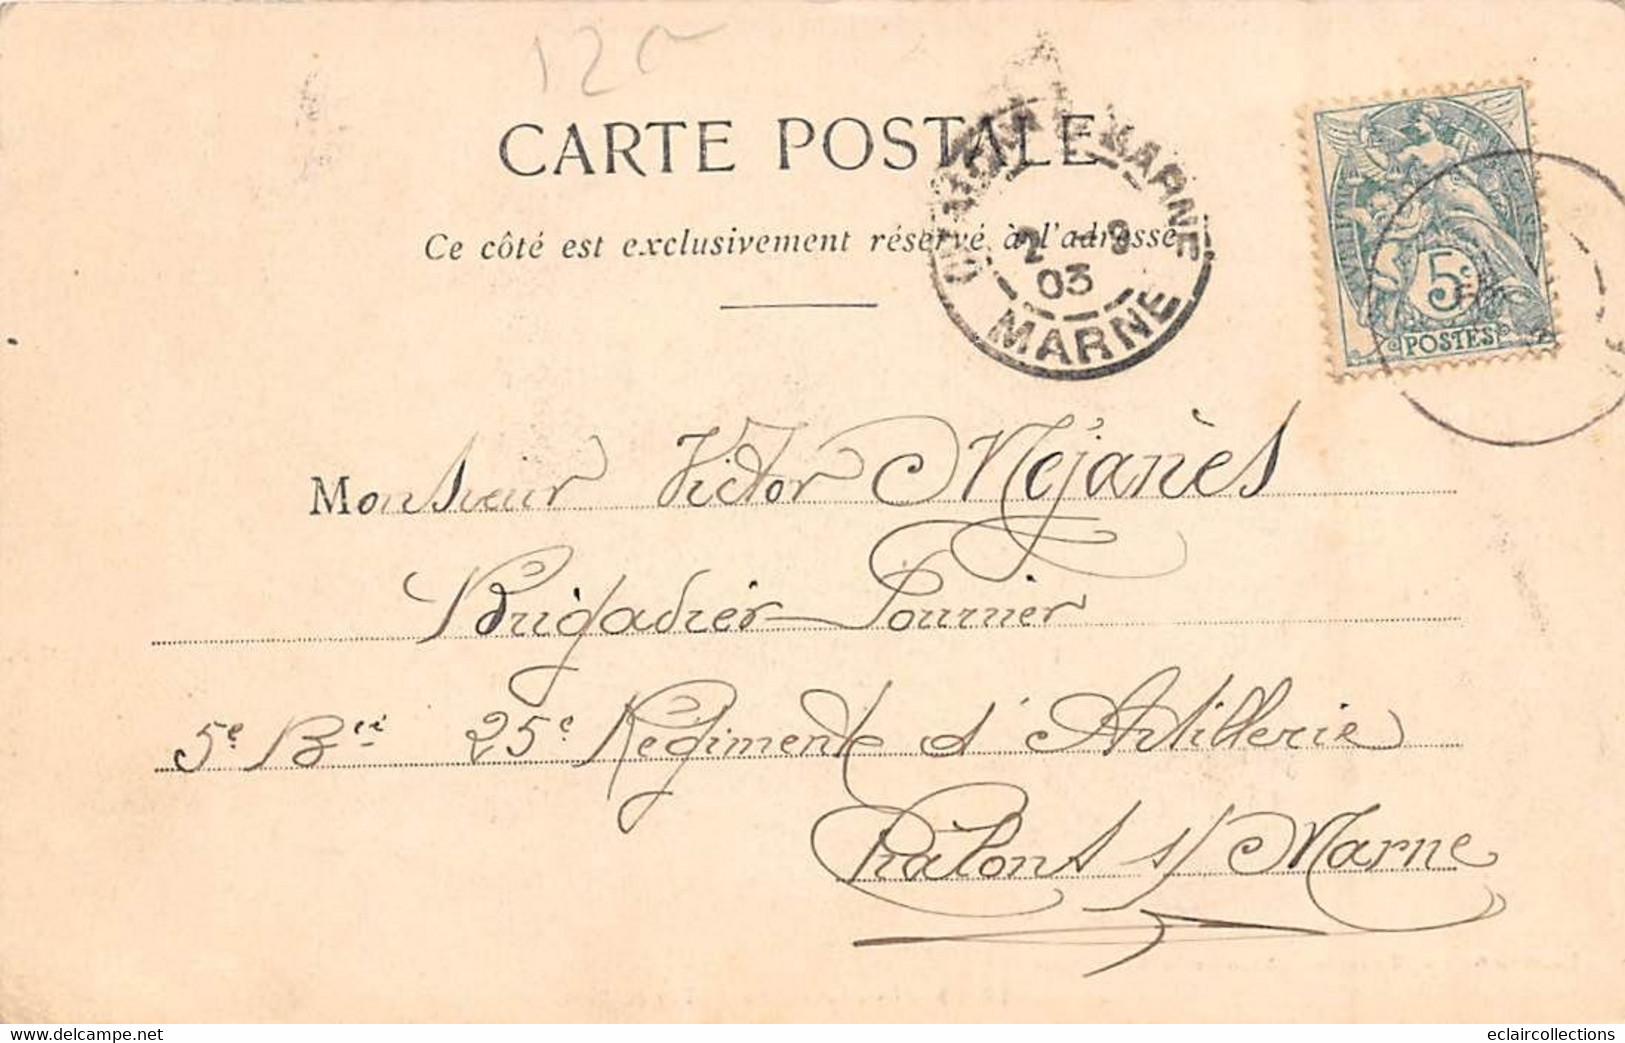 12
CARTE POSTALE
Ce côté est exclusivement réservé à l'adresse
CHALONS-S-MARNE
2 - 9
03
MARNE
5c
POSTES
Monsieur Victor Méjanès
Brigadier-Fourrier
5e Bie 25e Régiment d'Artillerie
Châlons s/ Marne
delcampe.net
eclaircollections